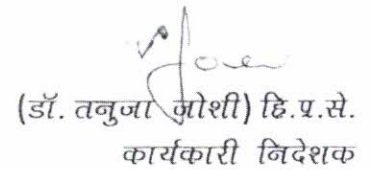 (डॉ. तनुजा जोशी) हि.प्र.से.
कार्यकारी निदेशक